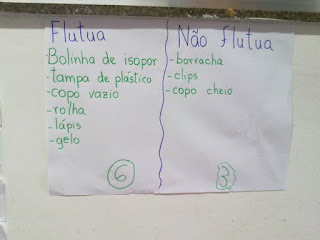 Flutua
Bolinha de isopor
-tampa de plástico
-copo vazio
-rolha
-lápis
-gelo
6
Não flutua
-borracha
-clips
-copo cheio
3